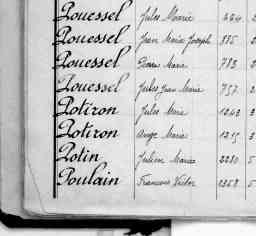 Pouessel Jules Marie 444
Pouessel Jean Marie Joseph 885
Pouessel Pierre Marie 783
Pouessel Jules Jean Marie 757
Potiron Jules Marie 1243
Potiron Ange Marie 1215
Potin Julien Marie 2280 5
Poulain Francois Victor 1268 5